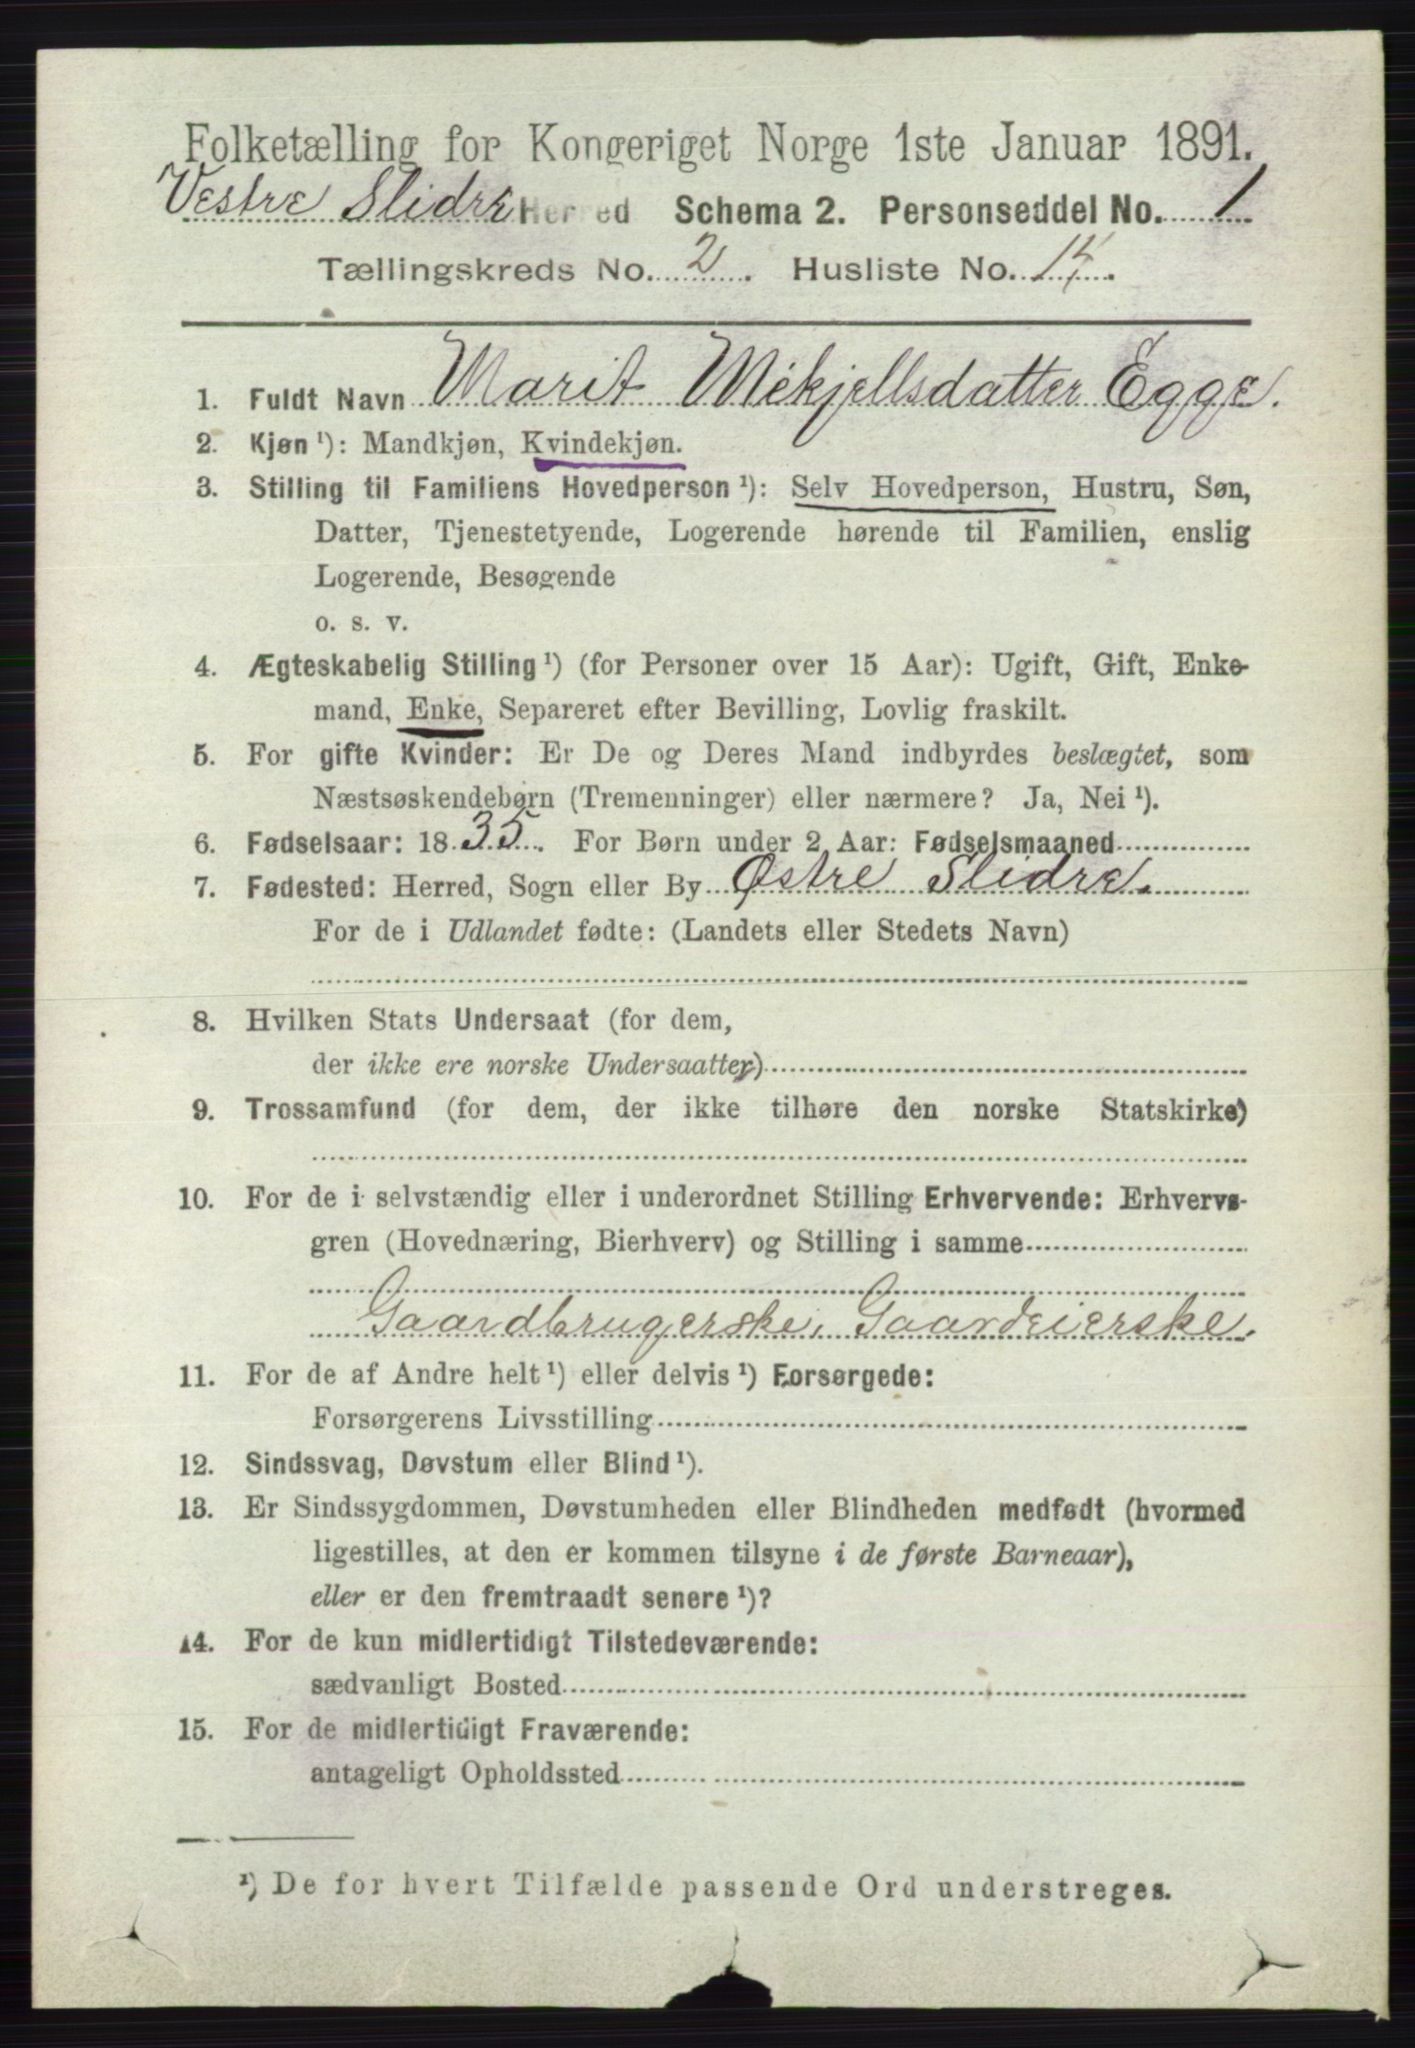 Folketælling for Kongeriget Norge 1ste Januar 1891.
Vestre Slidre Herred Schema 2. Personseddel No. 1
Tællingskreds No. 2. Husliste No. 14.
1. Fuldt Navn Marit Mikjellsdatter Egge.
2. Kjøn ¹): Mandkjøn, Kvindekjøn.
3. Stilling til Familiens Hovedperson ¹): Selv Hovedperson, Hustru, Søn,
Datter, Tjenestetyende, Logerende hørende til Familien, enslig
Logerende, Besøgende
o. s. v.
4. Ægteskabelig Stilling ¹) (for Personer over 15 Aar): Ugift, Gift, Enke-
mand, Enke, Separeret efter Bevilling, Lovlig fraskilt.
5. For gifte Kvinder: Er De og Deres Mand indbyrdes beslægtet, som
Næstsøskendebørn (Tremenninger) eller nærmere? Ja, Nei ¹).
6. Fødselsaar: 1835. For Børn under 2 Aar: Fødselsmaaned
7. Fødested: Herred, Sogn eller By Østre Slidre.
For de i Udlandet fødte: (Landets eller Stedets Navn)
8. Hvilken Stats Undersaat (for dem,
der ikke ere norske Undersaatter)
9. Trossamfund (for dem, der ikke tilhøre den norske Statskirke)
10. For de i selvstændig eller i underordnet Stilling Erhvervende: Erhvervs-
gren (Hovednæring, Bierhverv) og Stilling i samme
Gaardbrugerske, Gaardeierske.
11. For de af Andre helt ¹) eller delvis ¹) Forsørgede:
Forsørgerens Livsstilling
12. Sindssvag, Døvstum eller Blind ¹).
13. Er Sindssygdommen, Døvstumheden eller Blindheden medfødt (hvormed
ligestilles, at den er kommen tilsyne i de første Barneaar),
eller er den fremtraadt senere ¹)?
14. For de kun midlertidigt Tilstedeværende:
sædvanligt Bosted
15. For de midlertidigt Fraværende:
antageligt Opholdssted
¹) De for hvert Tilfælde passende Ord understreges.